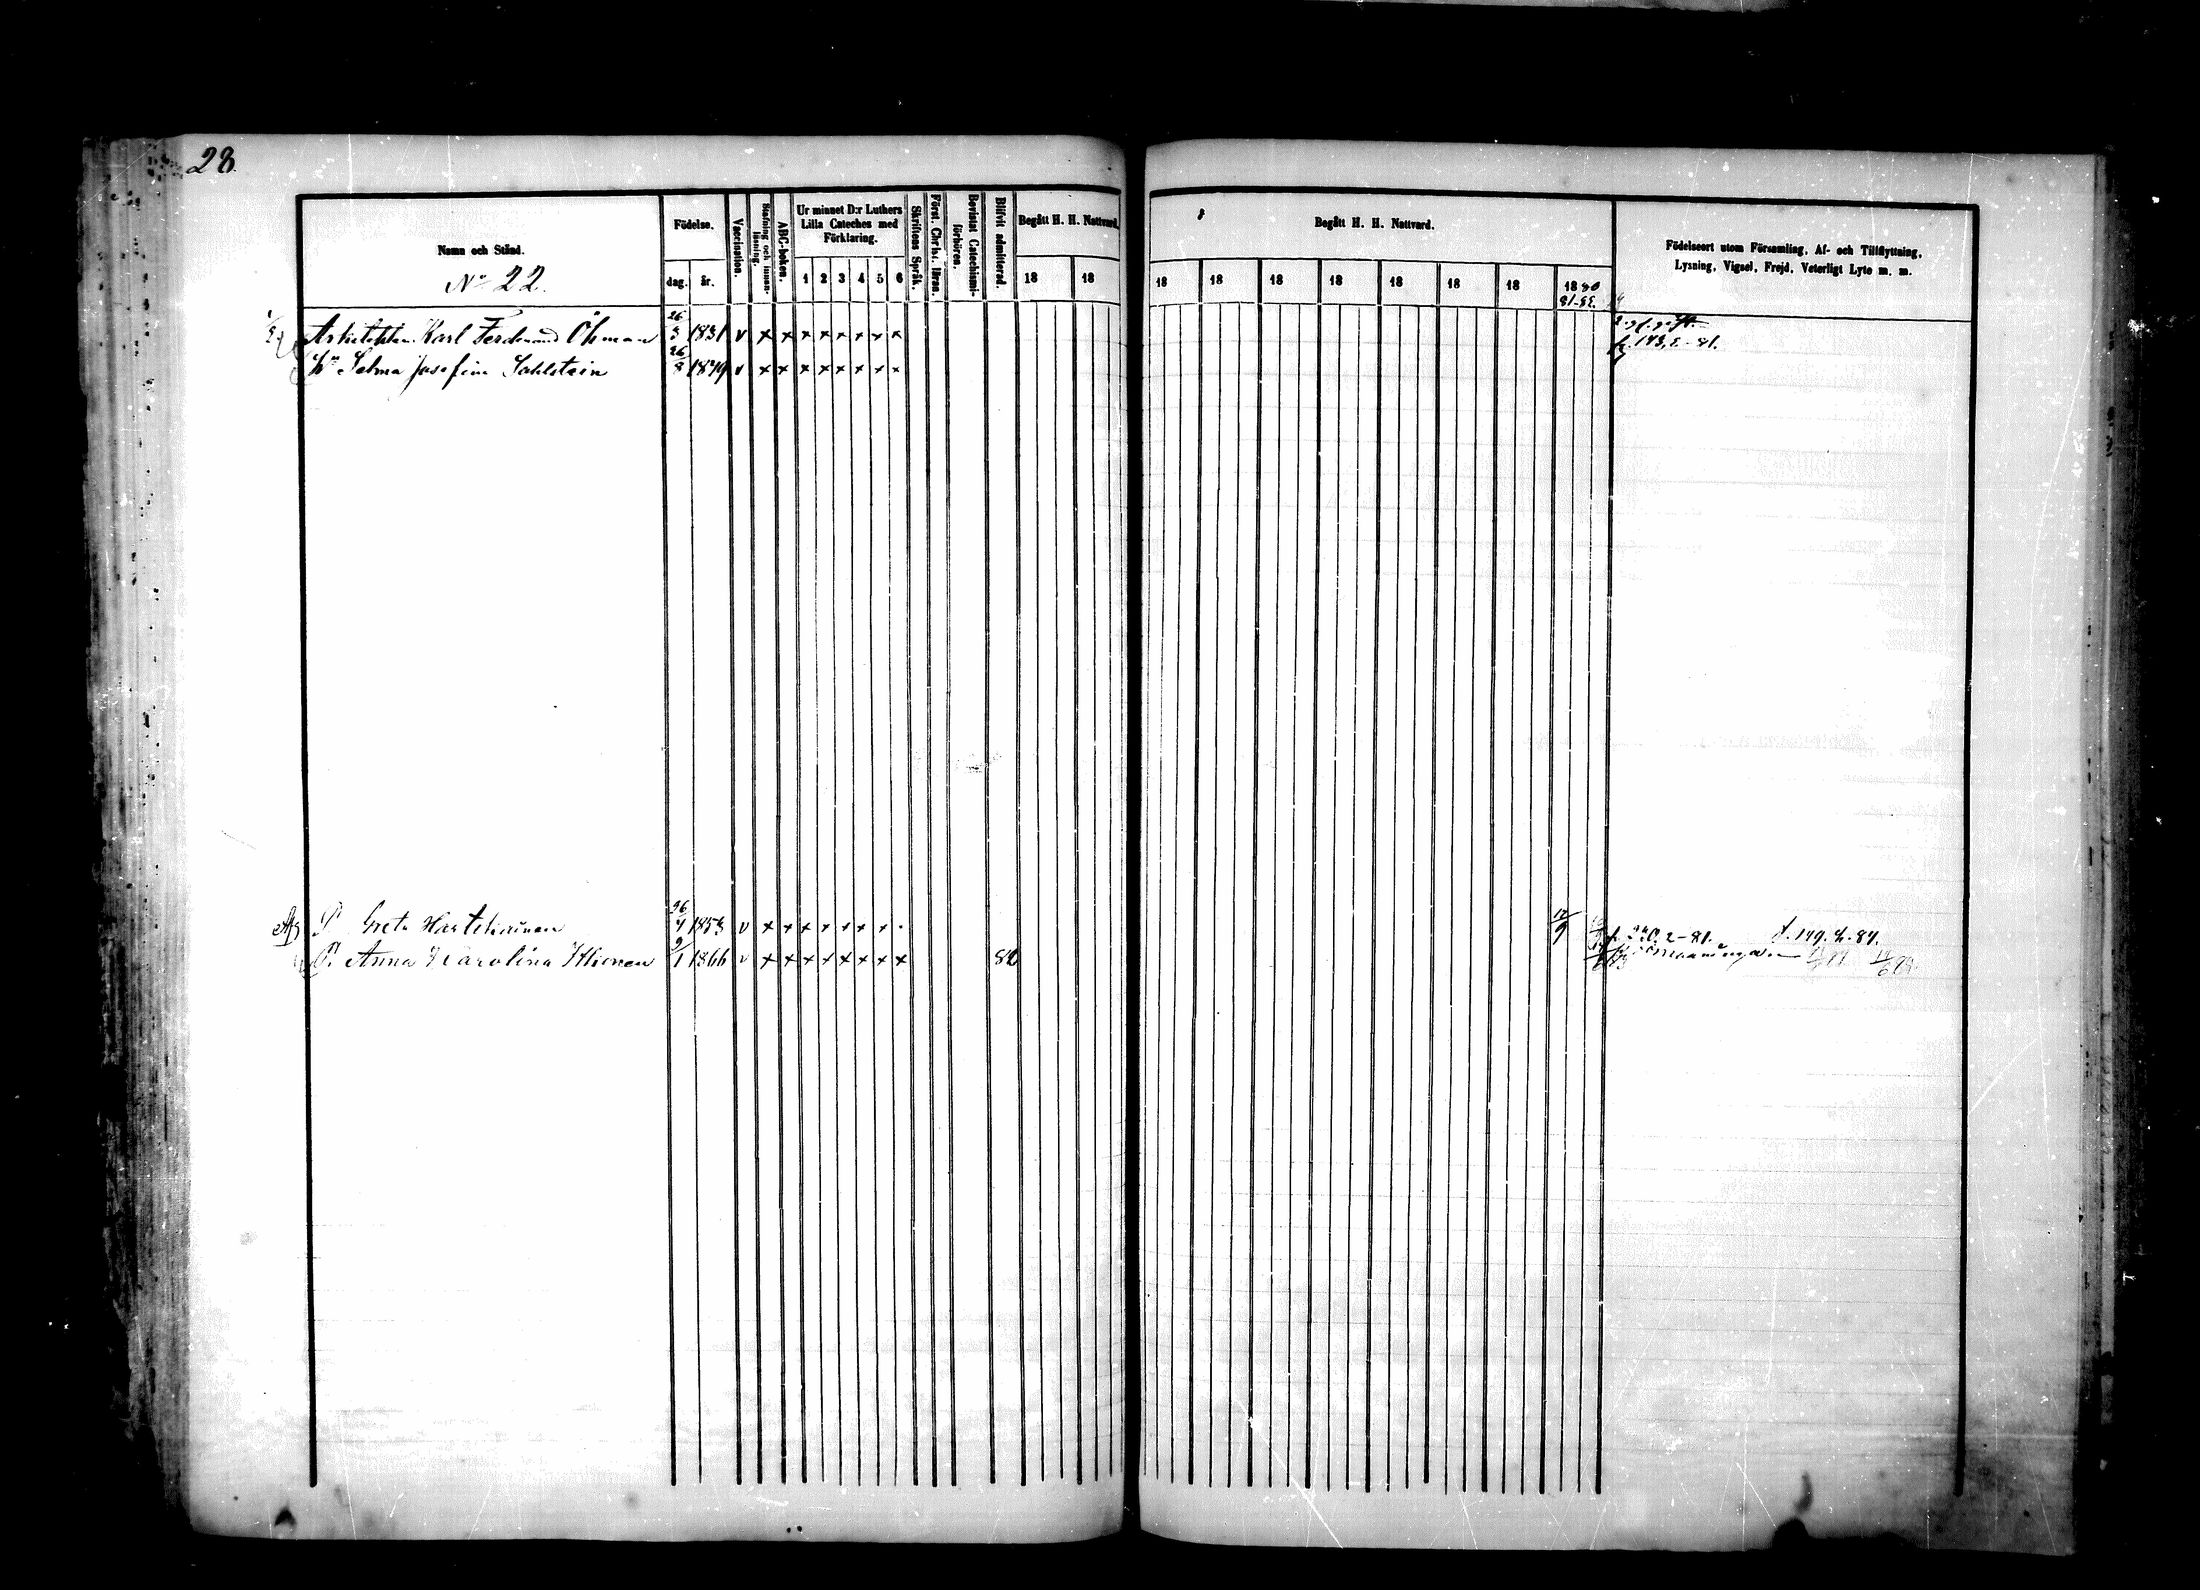 28.
Namn och Stånd.
No 22.
Födelse.
dag. år.
Vaccination.
Stafning och innanläsning.
ABC-boken.
Ur minnet D:r Luthers
Lilla Cateches med
Förklaring.
1 2 3 4 5 6
Skriftens Språk.
Först. Chris. läran.
Bevistat Catechismi-
förhören.
Blifvit admitterad.
Begått H. H. Nattvard.
18 18
Begått H. H. Nattvard.
18 18 18 18 18 18 18 1880
81-82.
Födelseort utom Församling, Af- och Tillflyttning,
Lysning, Vigsel, Frejd, Veterligt Lyte m. m.
Arkitekten Karl Ferdinand Öhman 26/3 1831 v x x x x x x x x
fr. 143, 2-81.
Hu Selma Josefina Sahlstein 26/8 1849 v x x x x x x x x
P. Greta 26/4 1853 v x x x x x x x 12/9 2-81. d. 149. 2. 84.
P. Anna Karolina 9/1 1866 v x x x x x x x x 82